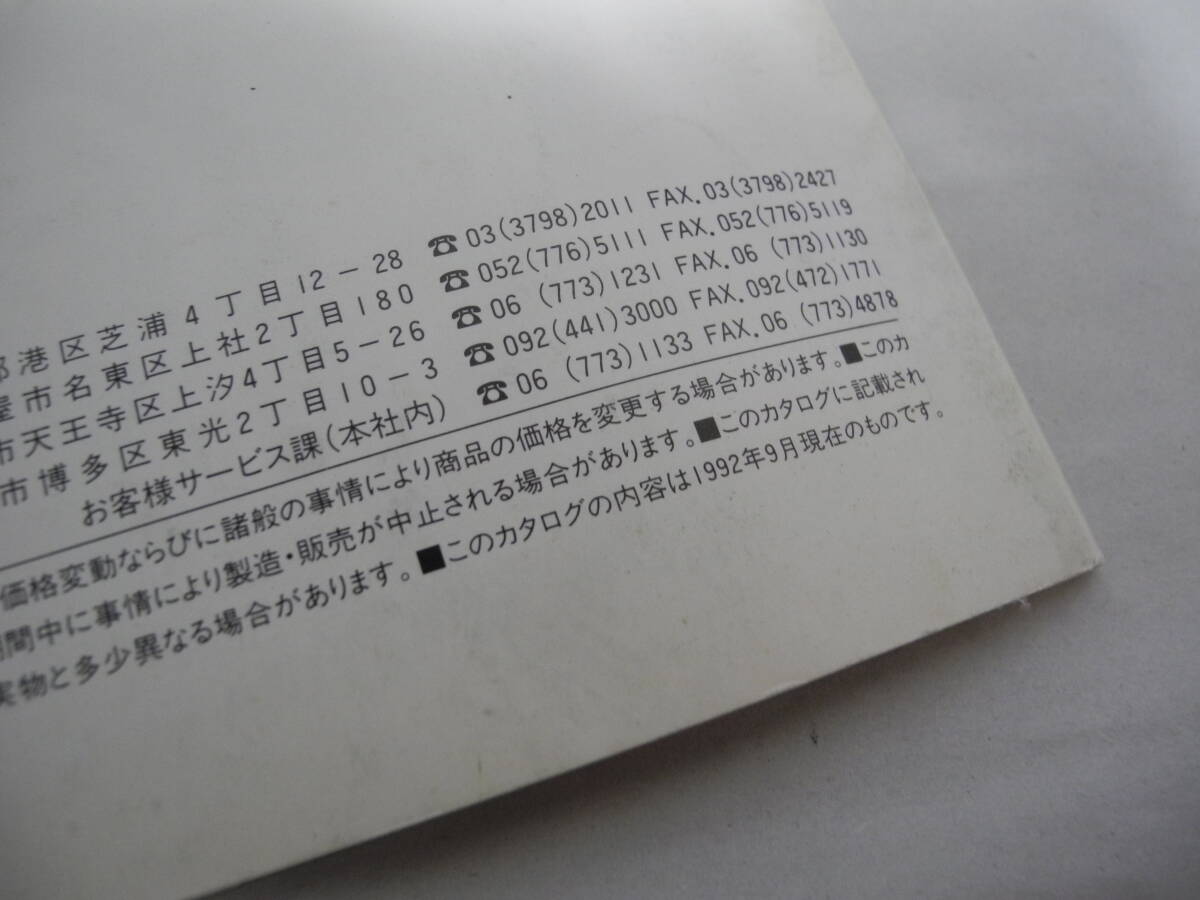 都港区芝浦4丁目12-28 ☎03(3798)2011 FAX.03(3798)2427
屋市名東区上社2丁目180 ☎052(776)5111 FAX.052(776)5119
市天王寺区上汐4丁目5-26 ☎06 (773)1231 FAX.06 (773)1130
市博多区東光2丁目10-3 ☎092(441)3000 FAX.092(472)1771
お客様サービス課(本社内) ☎06 (773)1133 FAX.06 (773)4878
価格変動ならびに諸般の事情により商品の価格を変更する場合があります。■このカ
期間中に事情により製造・販売が中止される場合があります。■このカタログに記載され
実物と多少異なる場合があります。■このカタログの内容は1992年9月現在のものです。